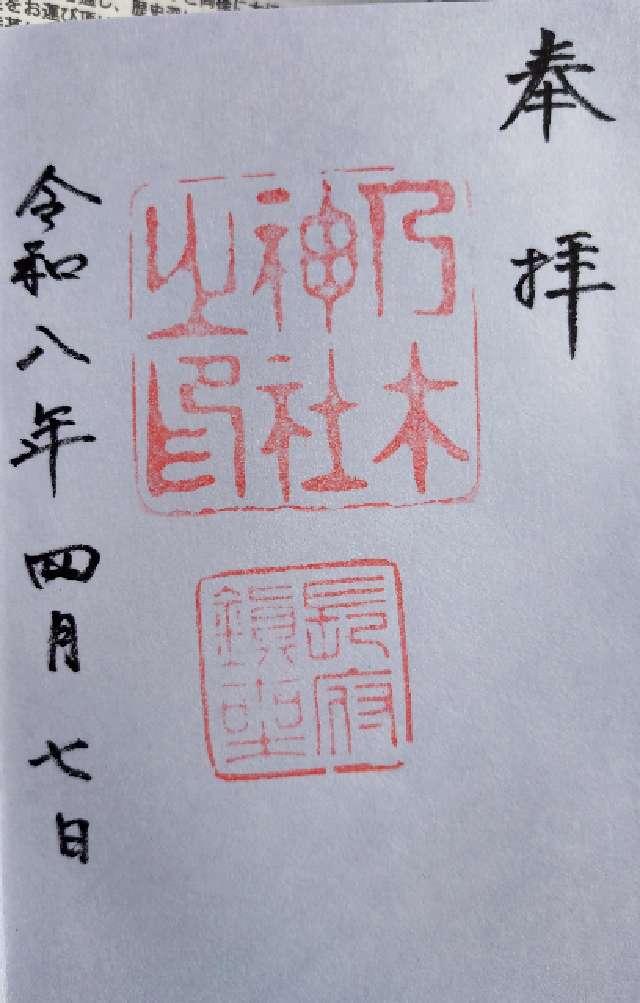 奉拝
乃木
神社
之印
長府
鎮座
令和八年四月七日